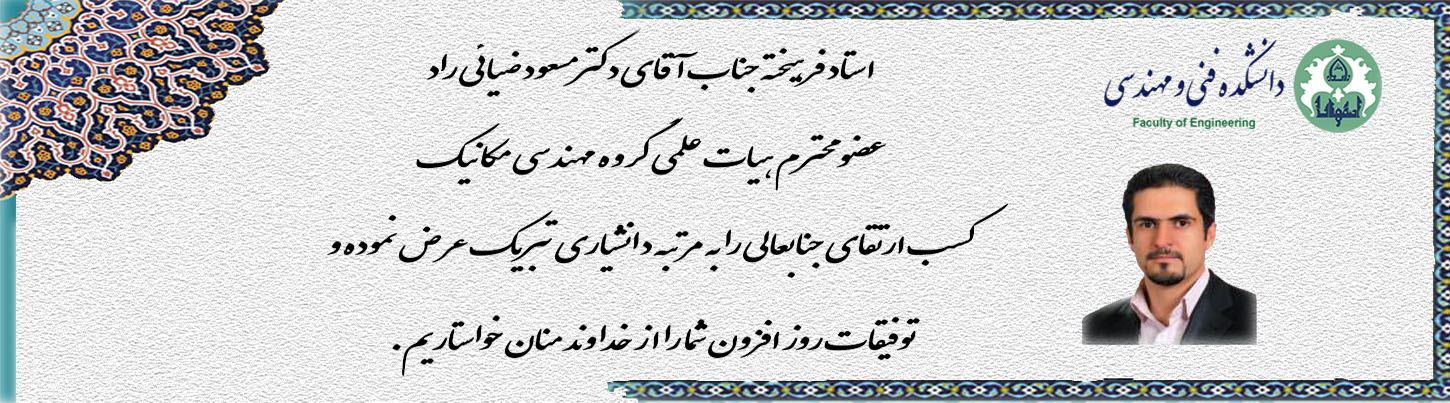 دانشکده فنی و مهندسی
Faculty of Engineering
استاد فرهیخته جناب آقای دکتر مسعود ضیائی راد
عضو محترم هیات علمی گروه مهندسی مکانیک
کسب ارتقای جنابعالی را به مرتبه دانشیاری تبریک عرض نموده و
توفیقات روز افزون شما را از خداوند منان خواستاریم .